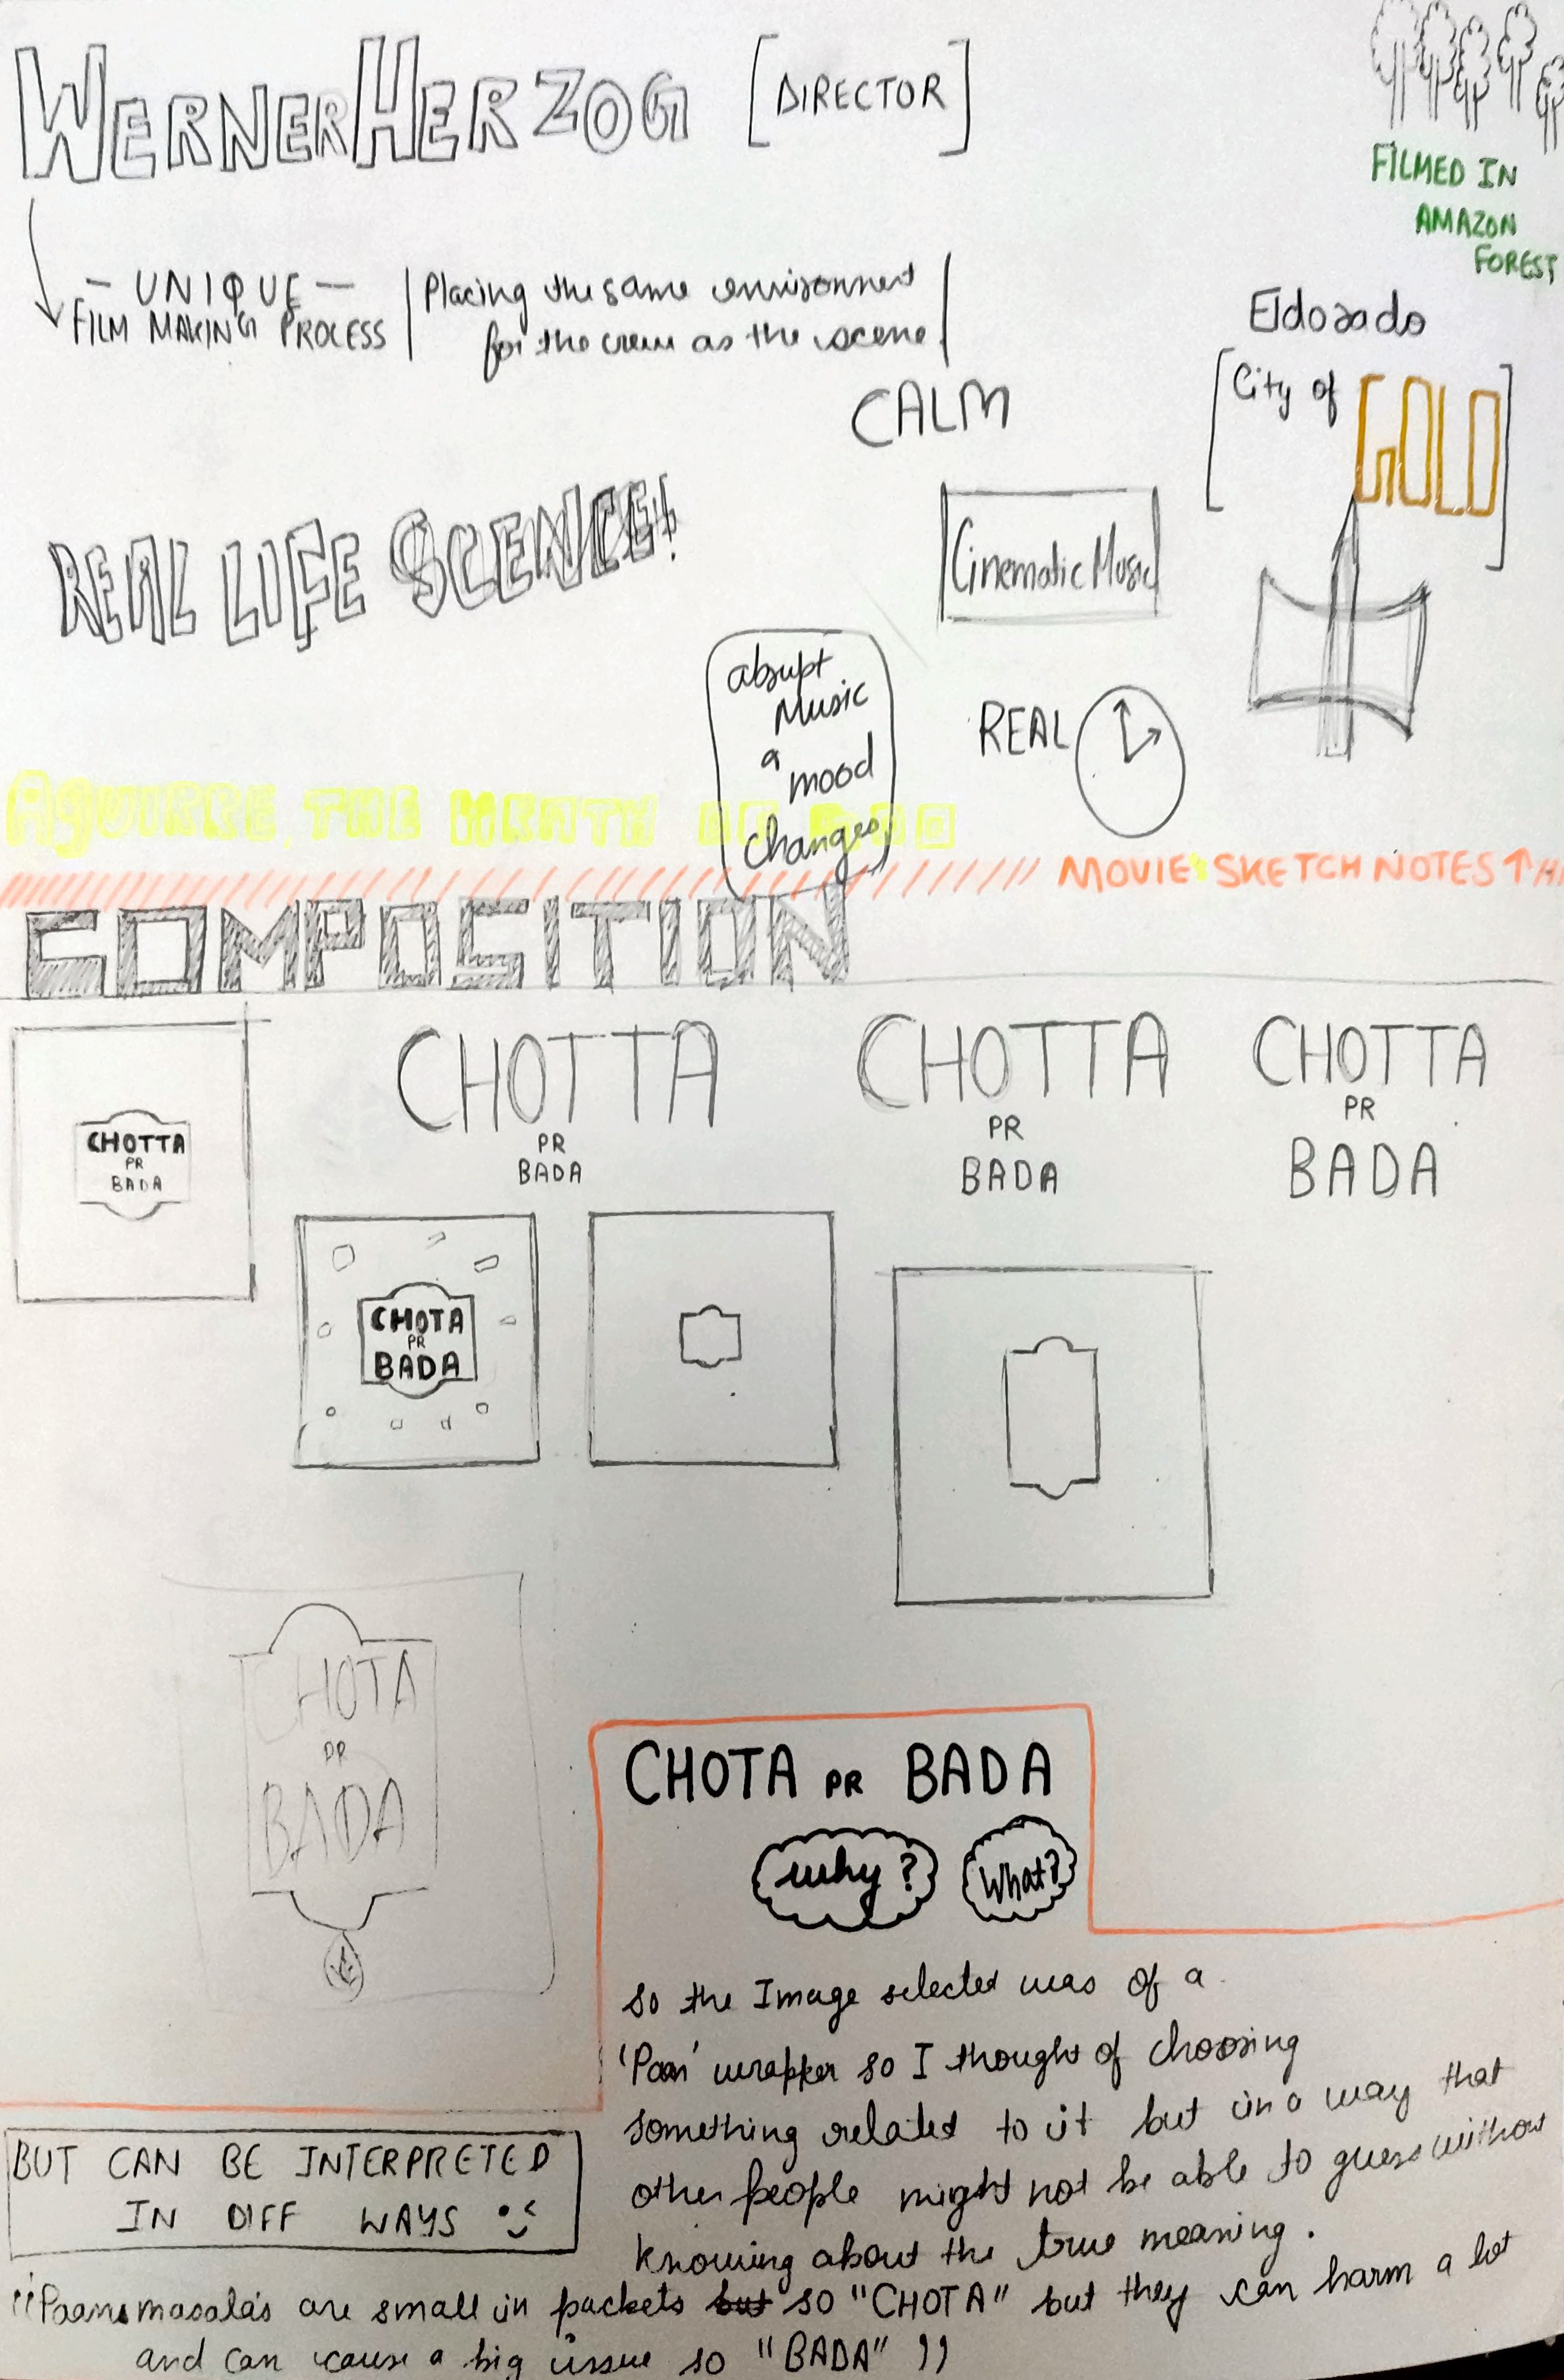 WERNER HERZOG [DIRECTOR]
FILMED IN
AMAZON
FOREST
- UNIQUE -
FILM MAKING PROCESS
Placing the same environment
for the crew as the scene.
Eldorado
[City of GOLD]
CALM
REAL LIFE SCENCE!
Cinematic Music
abrupt
Music
&
mood
changes
REAL
AGUIRRE, THE WRATH OF GOD
MOVIE SKETCH NOTES ↑
COMPOSITION
CHOTTA
PR
BADA
CHOTTA
PR
BADA
CHOTTA
PR
BADA
CHOTTA
PR
BADA
CHOTA
PR
BADA
CHOTA
PR
BADA
CHOTA PR BADA
why?
What?
So the Image selected was of a
'Paan' wrapper so I thought of choosing
something related to it but in a way that
other people might not be able to guess without
knowing about the true meaning.
BUT CAN BE INTERPRETED
IN DIFF WAYS
"Paan masala's are small in packets but so "CHOTA" but they can harm a lot
and can cause a big issue so "BADA" "